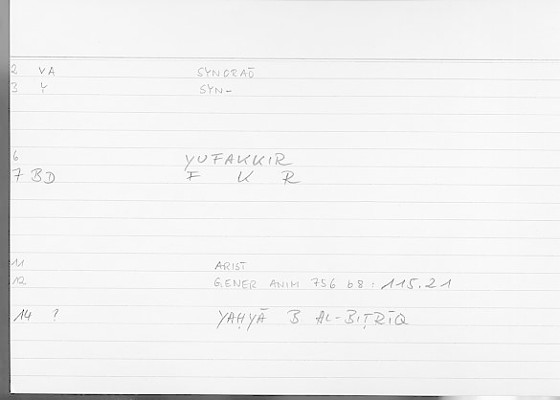 2 VA SYNORAŌ
3 Y SYN-
6 YUFAKKIR
7 BD F K R
11 ARIST
12 GENER ANIM 756 b8 : 115.21
14 ? YAḤYĀ B. AL-BIṬRĪQ